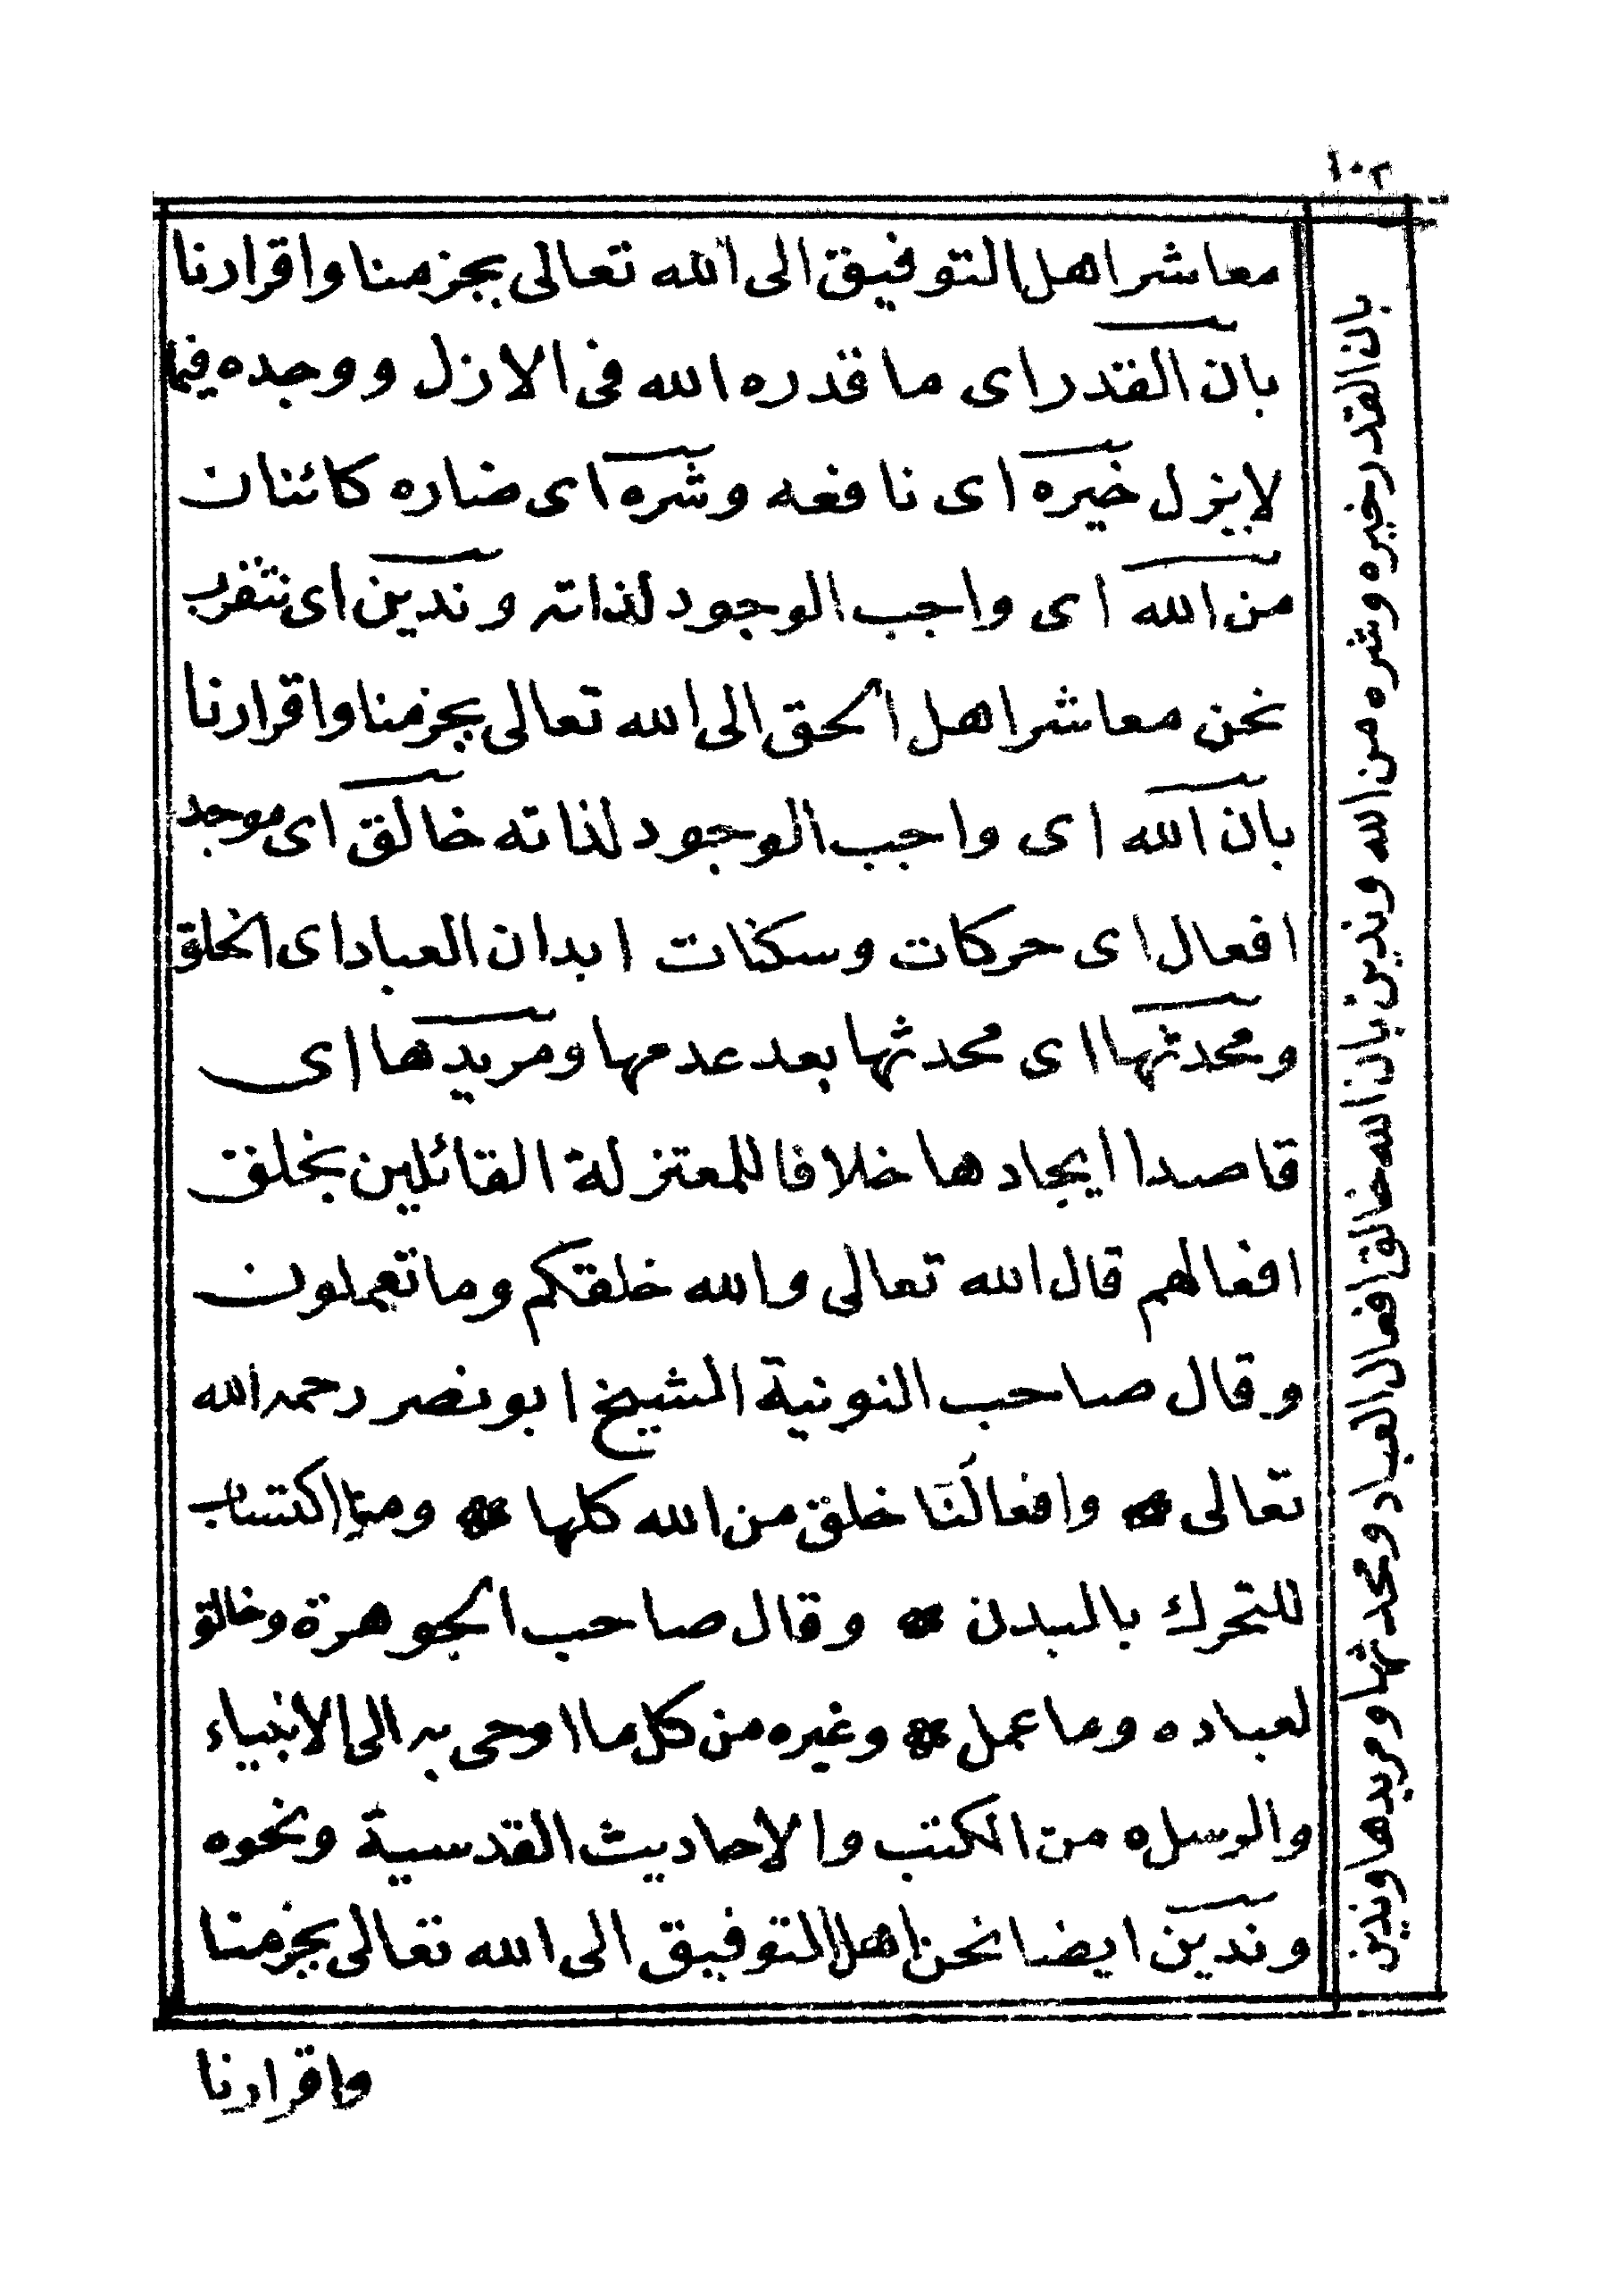 ١٠٢
معاشر اهل التوفيق الى الله تعالى بجزمنا واقرارنا
بان القدر اى ما قدره الله فى الازل ووجده فيما
لايزل خيره اى نافعه وشره اى ضاره كائنان
من الله اى واجب الوجود لذاته وندين اى نتقرب
نحن معاشر اهل الحق الى الله تعالى بجزمنا واقرارنا
بان الله اى واجب الوجود لذاته خالق اى موجد
افعال اى حركات وسكنات ابدان العباد اى الخلق
ومحدثها اى محدثها بعد عدمها ومريدها اى
قاصدا ايجادها خلافا للمعتزلة القائلين بخلق
افعالهم قال الله تعالى والله خلقكم وما تعملون
وقال صاحب النونية الشيخ ابو نصر رحمه الله
تعالى وافعالنَا خلق من الله كلها ومنا اكتساب
للتحرك بالبدن وقال صاحب الجوهرة وخالق
لعباده وما عمل وغيره من كل ما اوحى به الى الانبياء
والرسل من الكتب والاحاديث القدسية ونحوه
وندين ايضا نحن اهل التوفيق الى الله تعالى بجزمنا
واقرارنا
بان القدر خيره وشره من الله وندين بان الله خالق افعال العباد ومحدثها ومريدها وندين